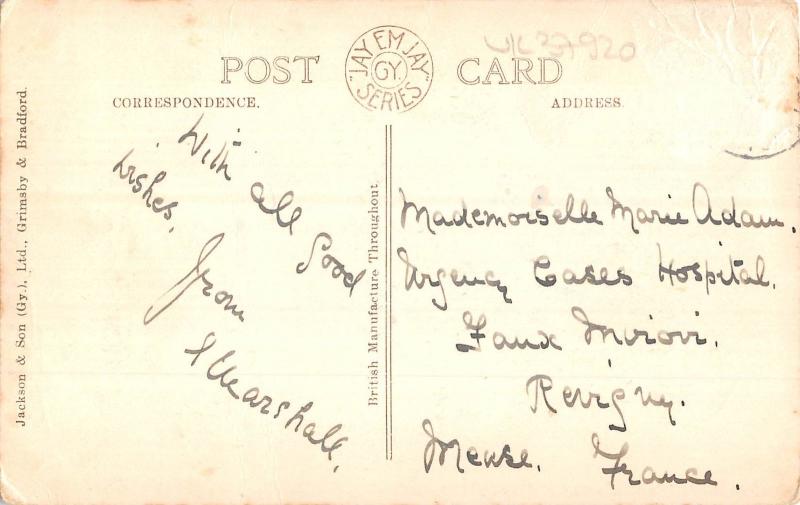 U/L 37920
POST CARD
"JAY EM JAY"
GY.
SERIES
CORRESPONDENCE.
ADDRESS.
With all Good
wishes,
from
Marshall.
Mademoiselle Marie Adam.
Urgency Cases Hospital.
Faux Miroir.
Revigny.
Meuse. France.
British Manufacture Throughout.
Jackson & Son (Gy.), Ltd., Grimsby & Bradford.